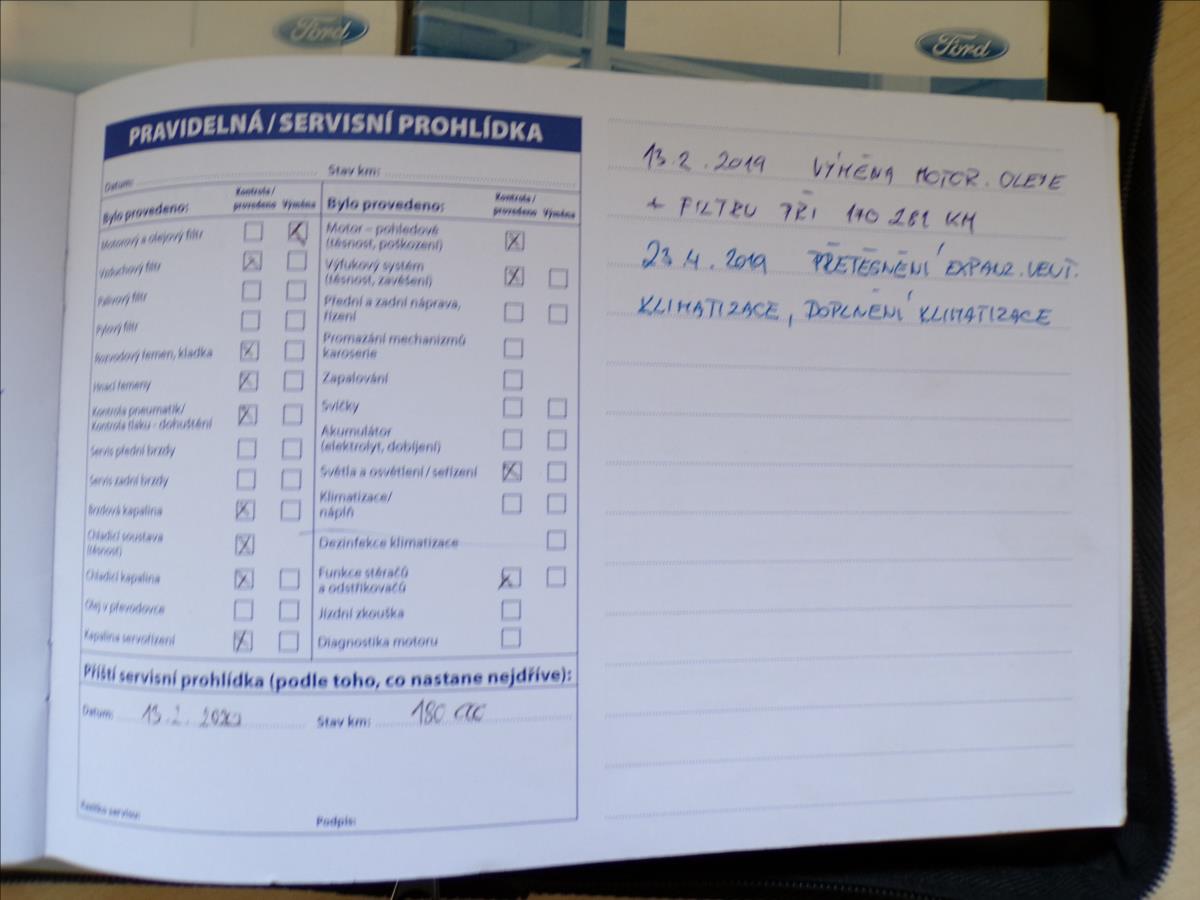 Ford
Ford
PRAVIDELNÁ / SERVISNÍ PROHLÍDKA
Datum: Stav km:
Bylo provedeno: Kontrola / provedeno Výměna
Motorový a olejový filtr
Vzduchový filtr
Palivový filtr
Pylový filtr
Rozvodový řemen, kladka
Hnací řemeny
Kontrola pneumatik/
Kontrola tlaku - dohuštění
Servis přední brzdy
Servis zadní brzdy
Brzdová kapalina
Chladicí soustava
(těsnost)
Chladicí kapalina
Olej v převodovce
Kapalina servořízení
Bylo provedeno: Kontrola / provedeno Výměna
Motor – pohledově
(těsnost, poškození)
Výfukový systém
(těsnost, zavěšení)
Přední a zadní náprava,
řízení
Promazání mechanizmů
karoserie
Zapalování
Svíčky
Akumulátor
(elektrolyt, dobíjení)
Světla a osvětlení / seřízení
Klimatizace/
náplň
Dezinfekce klimatizace
Funkce stěračů
a odstřikovačů
Jízdní zkouška
Diagnostika motoru
Příští servisní prohlídka (podle toho, co nastane nejdříve):
Datum: 13.2.2020 Stav km: 180 000
Razítko servisu: Podpis:
13.2.2019 VÝMĚNA MOTOR. OLEJE
+ FILTRU PŘI 170 281 KM
23.4.2019 PŘETĚSNĚNÍ EXPANZ. VENT.
KLIMATIZACE, DOPLNĚNÍ KLIMATIZACE